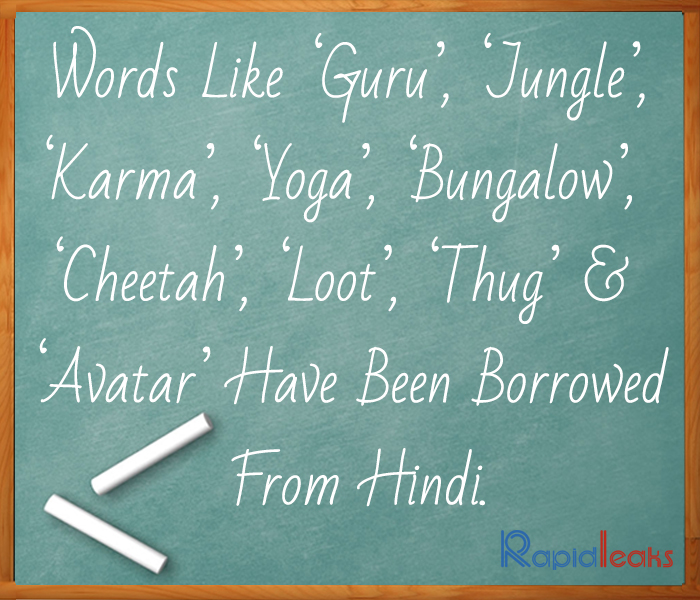 Words Like ‘Guru’, ‘Jungle’,
‘Karma’, ‘Yoga’, ‘Bungalow’,
‘Cheetah’, ‘Loot’, ‘Thug’ &
‘Avatar’ Have Been Borrowed
From Hindi.
Rapidleaks